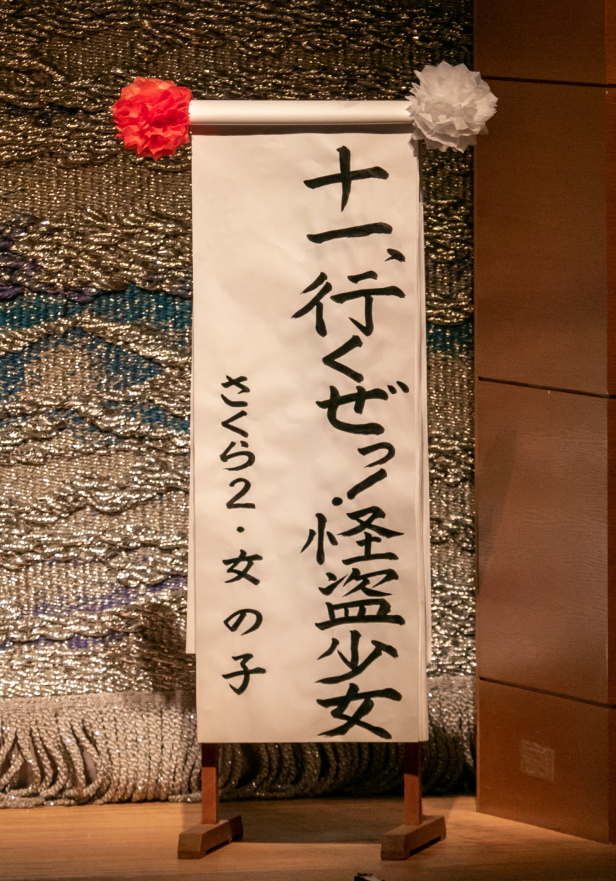 十一、行くぜっ！怪盗少女
さくら２・女の子